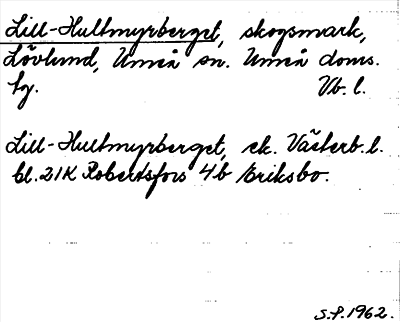 Lill-Hultmyrberget, skogsmark,
Lövlund, Umeå sn. Umeå doms.
hg. Vb. l.
Lill-Hultmyrberget, ek. Västerb. l.
bl. 21K Robertsfors 4b Eriksbo.
S.P. 1962.